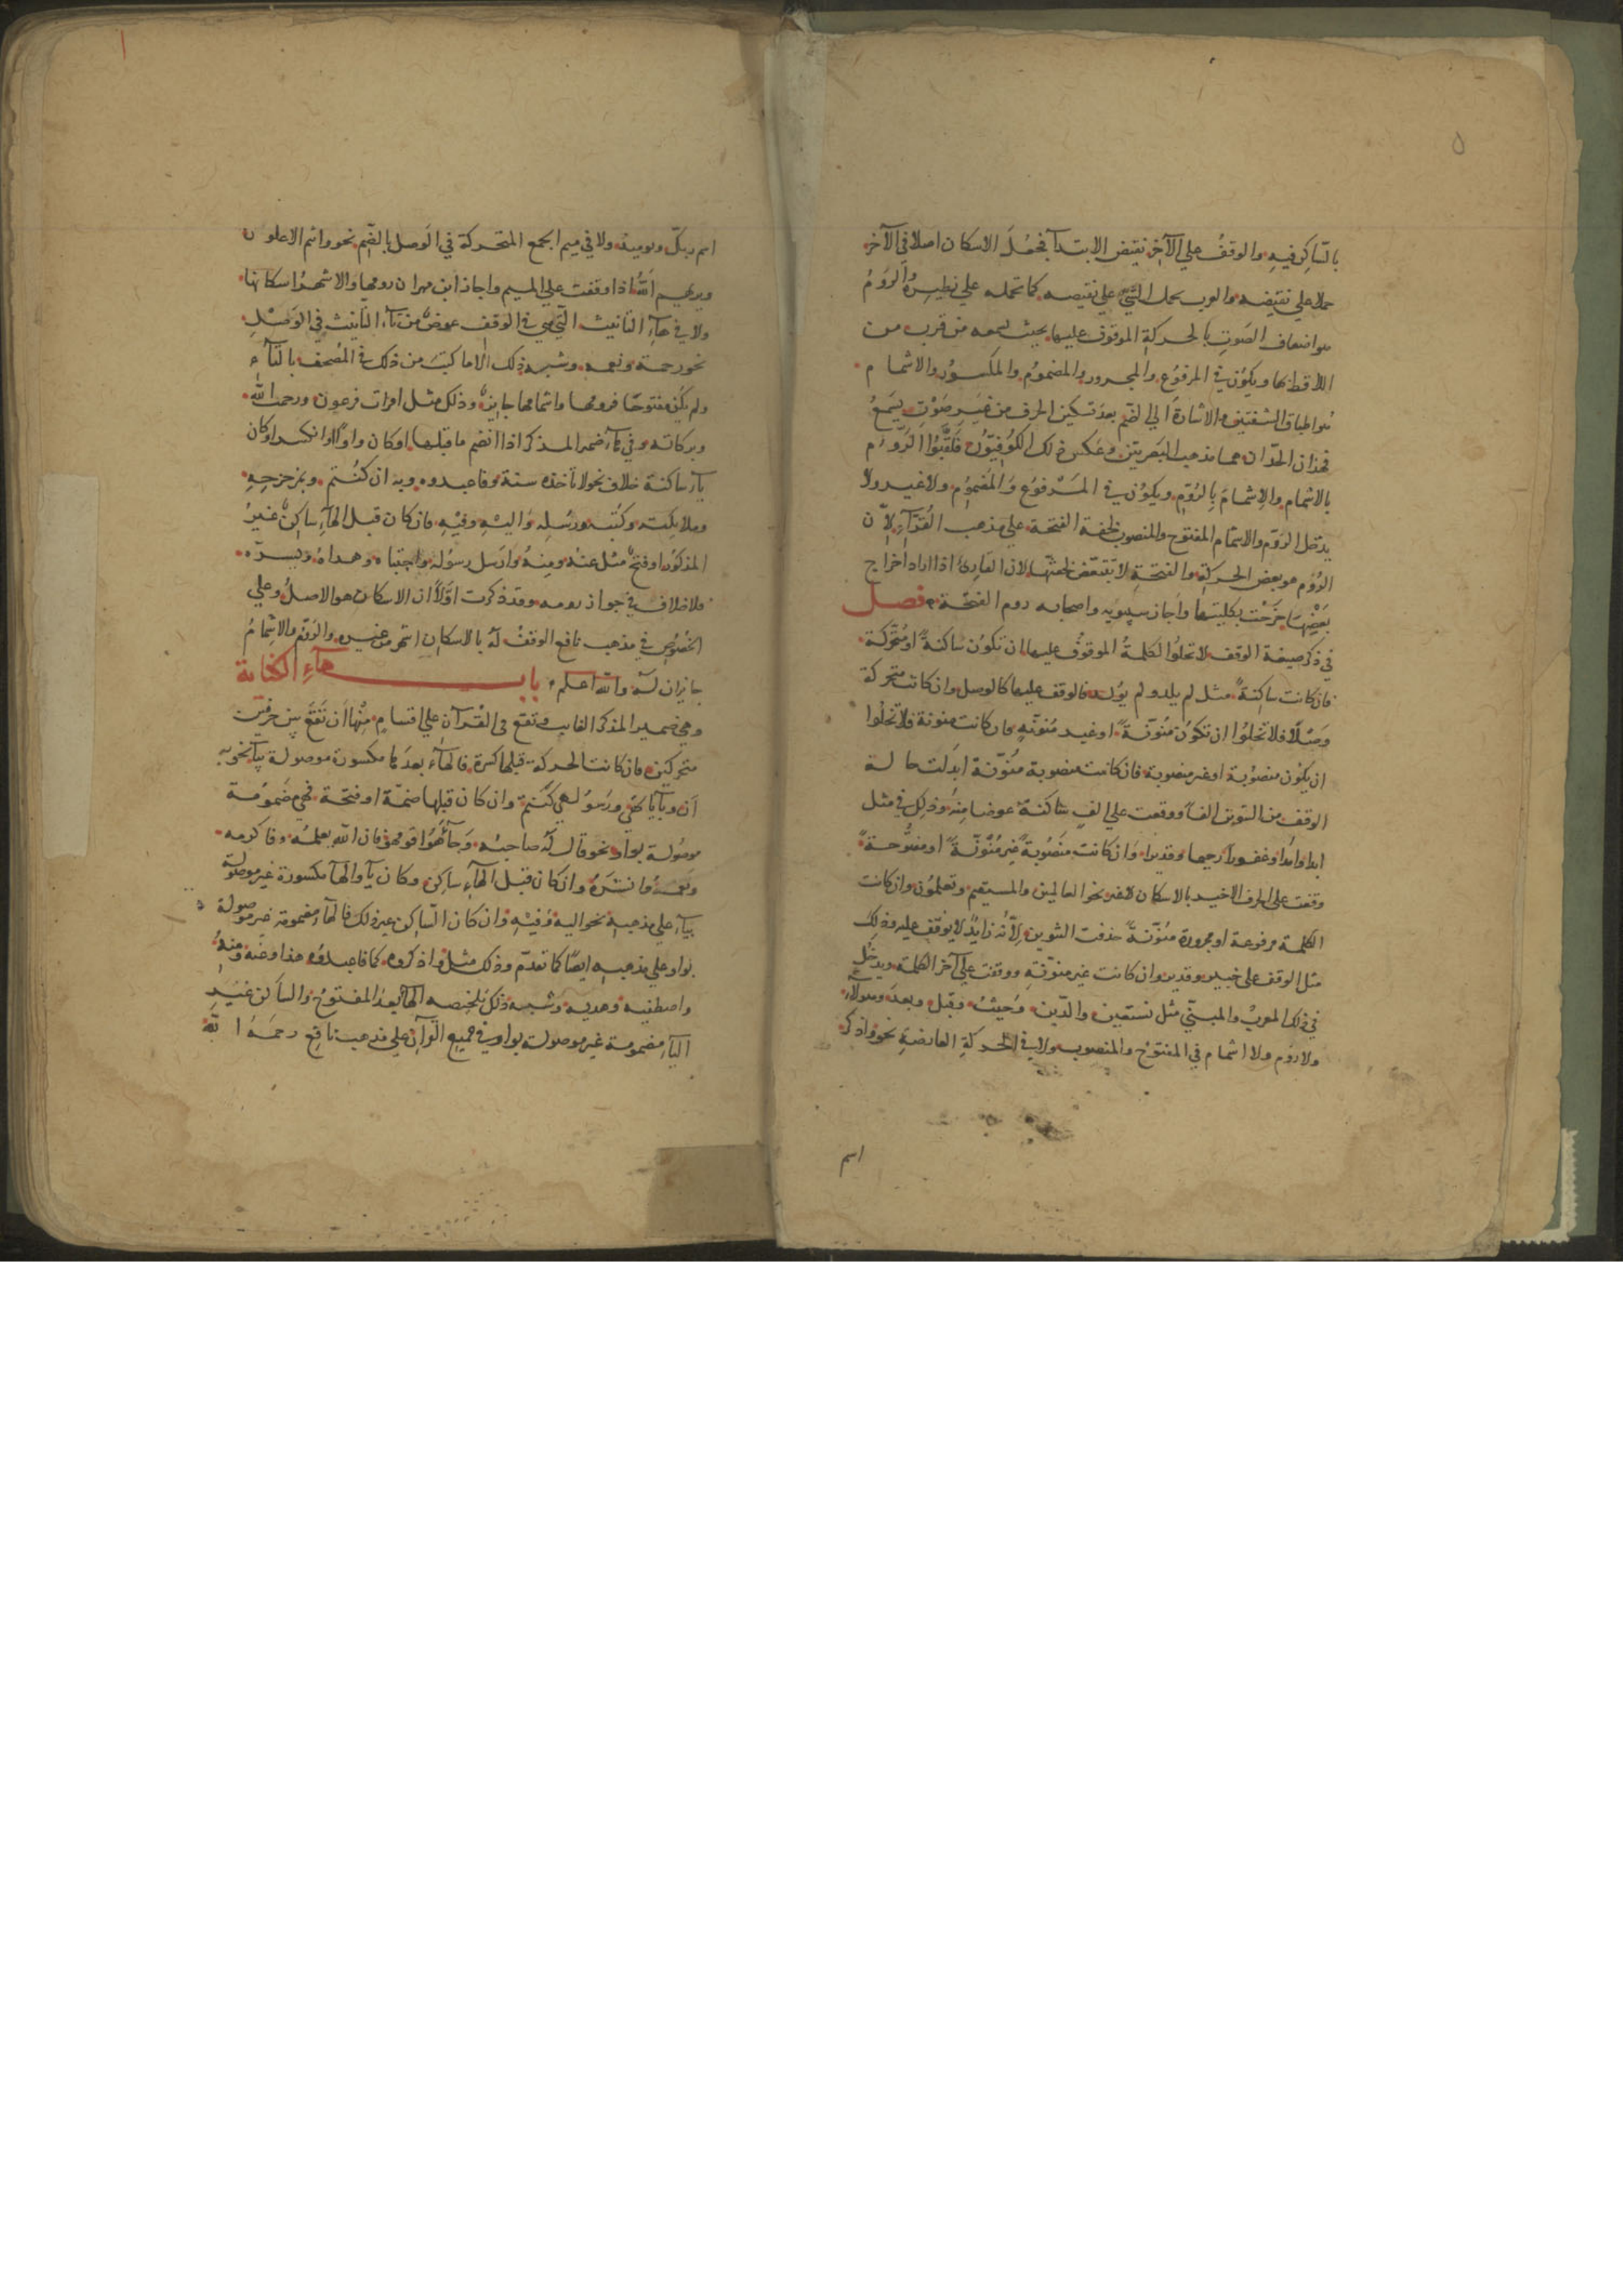 ٥
بالساكن فيه والوقف علي الآخر نقيض الابتدآ فجعل الاسكان اصلا في الآخر
حملا علي نقيضه والعرب تحمل الشيَّ علي نقيضه كما تحمله علي نظيره الرَوْمُ
هو اضعاف الصَوت بالحركة الموقوف عليها بحيث يسمعه من قرب من
اللافظ بها ويكوُن في المرفوُع والمجرور والمضموُم والمكسوُر والاشمام
هو اطباق الشفتين والاشارة الي الضّم بعد تسكين الحرف من غير صَوْتٍ يسَمعُ
فهذان الحدّان هما مذهب البَصريّين وعكس ذلك الكوُفيّوُن فلقّبُوا الرَوْم
بالاشمام والاِشمامَ بالرَوْم ويكوُن في المَرفوُع وَالمضموُم ولاغير ولا
يدخل الرَوْم والاشمام المفتوح والمنصوب لخفة الفتحة علي مذهب القُرّآءِ لأن
الرَوْم هو بعض الحركة والفتحةِ لا تَتبعّض لخفتّها لان القارئ اذا اراد اخراج
بَعْضِهَا خَرَجَت بكليتها وأجاز سيبويه واصحابه روم الفتحة فصل
في ذكر صيغة الوقف لا تخلوُا الكلمةُ الموقوُف عليها ان تكوُن ساكنةً او مُتحرّكة
فان كانت ساكِنةً مثل لم يلد ولم يوُلد فالوقف عليها كالوصل وان كانت متحركة
وَصْلًا فلا تخلوُا ان تكوُن مُنوّنةً او غير مُنوّنةٍ فان كانت منونة فلا تخلُوا
ان يكوُن منصوُبة او غير منصوبة فان كانت منصوبة مُنوّنة ابدَلت حالة
الوقف من التنوين الفاً ووقفت علي الفٍ ساكنةً عوضا مِنهُ وذلك في مثل
ابدا وامدًا وغفورًا رحيما وقديرا وَان كانت مَنصُوبةً غير مُنوّنةً او مفتوُحةً
وقفت علي الحرف الاخير بالاسكان لاغير نحو العالمين والمستقيم وتعلموُن وان كانت
الكلمة مرفوعة او مجرورة مُنوّنةً حذفت التنوين لأنّهُ زايدٌ لا يوُقف عليه وذلك
مثل الوقف علي خبير وقدير وان كانت غير منوّنةٍ ووقفت علي آخر الكلمة ويدخلُ
في ذلك المعربُ والمبنيّ مثل نستعين والدّين وَحيثُ وقبل وبعدَ وهولآء
ولا روْم ولا اشمام في المفتوُح والمنصوب ولا في الحركة العارضةِ نحو واذكر
اسم
اسم ربك ويوميذ ولا في ميم الجمع المتحركة في الوصل بالضم نحو وانتم الاعلون
ويريهم اللهُ اذا وقفت علي الميم واجاز ابن مهران رومها والاشهر اسكانها
ولا في هآءِ التانيث التي هي في الوقف عوضٌ من تآءِ التانيث في الوَصْلِ
نحو رحمة ونعمه وشبه ذلك الا ما كتبَ من ذلك في المُصحف بالتآء
ولم يكُن مفتوحًا فرومها واشمامها جايزٌ وذلك مثل امرات فرعون ورحمت الله
وبركاته وفي هآءِ ضمير المذكر اذا انضم ما قبلها او كان واوًا او انكسر او كان
يآء ساكنة خلاف نحو لا تاخذه سنة وفاعبدوه وبه ان كنتُم وبمزحزحِهِ
وملايكته وكتبه ورسُلِه واليْهِ وفيْهِ فان كان قبل الهآءِ ساكِنٌ غيرُ
المذكوُر او فتحٌ مثل عنْهُ ومِنهُ وارسَل رسوُلهُ واجتباه وهداهُ ويسرّه
فلا خلاف في جواز رومه وقد ذكرت اوّلاً ان الاسكان هو الاصلُ وعلي
الخصُوص في مذهب نافع الوقفُ لهُ بالاسكان اشهر من غيره والرَوْم والاشمامُ
جايزان لهُ والله اعلم باب هآءِ الكناية
وهي ضمير المذكر الغايب وتقع في القُرآن علي اقسامٍ مِنُها اَن تَقعَ بين حرفين
متحركين فان كانت الحركة قبلها كسرة فالهآء بعدها مكسورة موصولة بيآءٍ نحو به
ان وبآياتهي ورسوُلهي كنتم وان كان قبلها ضمّة او فتحة فهي مضموُمة
موصُولة بواو نحو قال لهُ صاحبُه وَجآءَهُوُ اقومهو فان اللهَ يعلمُه وفاكرمه
ونعمهُ وانشرَهُ وان كان قبل الهآءِ ساكِن وكان يآءً والهآء مكسورة غير موصوُلة
بيآءٍ علي مذهبِه نحو اليهِ وفيْهِ وان كان السّاكن غير ذلك فالهآءُ مضمومة غير موصولة
بواو علي مذهبه ايضًا كما تقدّم وذلك مثل واذكروه كما فاعبدوُه هذا وعَنه ومِنهُ
واصطفيه وهديه وشبه ذلك تلخيصه الهآء بعدَ المفتوُح والساكن غيرِ
اليآءِ مضمومة غير موصولة بواوٍ في جميع القرآن علي مذهب نافِع رحمَهُ اللهُ